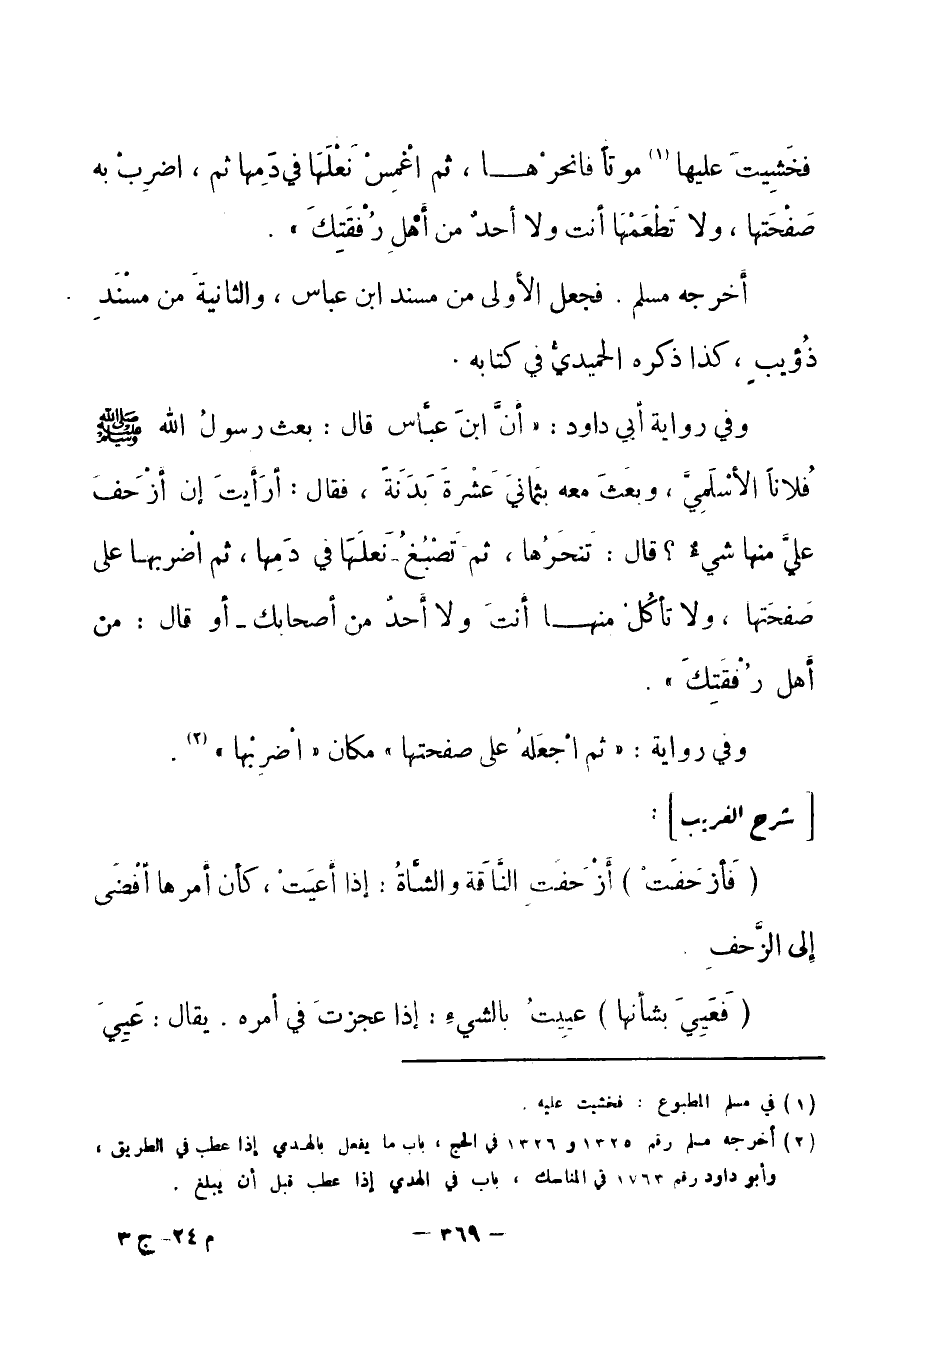 فخَشِيتَ عليها (١) موتاً فانحرْهـــا ، ثم اغْمِسْ نَعْلَهَا في دَمِها ثم ، اضرِبْ به
صَفْحَتها ، ولا تَطْعَمْهَا أنت ولا أحدٌ من أَهْلِ رُفْقَتِكَ » .
أخرجه مسلم . فجعل الأولى من مسند ابن عباس ، والثانيةَ من مسْنَدِ
ذُؤيبٍ ، كذا ذكره الحميديُّ في كتابه .
وفي رواية أبي داود : « أنَّ ابنَ عبَّاس قال : بعث رسولُ الله ﷺ
فُلاناً الأسْلَمِيَّ ، وبعَثَ معه بثَمَانيَ عَشْرةَ بَدَنَةً ، فقال : أرَأَيتَ إن أزْحَفَ
عليَّ منها شيءٌ ؟ قال : تَنحَرُها ، ثم تَصْبُغُ نَعلَهَا في دَمِها ، ثم اضْربهـا على
صَفحَتها ، ولا تأكُلْ منهـــا أنتَ ولا أحدٌ من أصحابك ـ أو قال : من
أهل رُفْقَتِكَ » .
وفي رواية : « ثم اجْعَلهُ على صفحتها » مكان « اضْرِبْها » (٢) .
[ شرح الغريب ] :
( فَأزْحَفَتْ ) أَزْحَفتِ النَّاقة والشَّاةُ : إذا أعيَتْ ، كأن أمرها أفْضَى
إلى الزَّحفِ .
( فَعَيِيَ بشأنها ) عييتُ بالشيءِ : إذا عجزتَ في أمره . يقال : عَيِيَ
(١) في مسلم المطبوع : فخشيت عليه .
(٢) أخرجه مسلم رقم ١٣٢٥ و ١٣٢٦ في الحج ، باب ما يفعل بالهدي إذا عطب في الطريق ،
وأبو داود رقم ١٧٦٣ في المناسك ، باب في الهدي إذا عطب قبل أن يبلغ .
– ٣٦٩ –
م ٢٤ - ج ٣